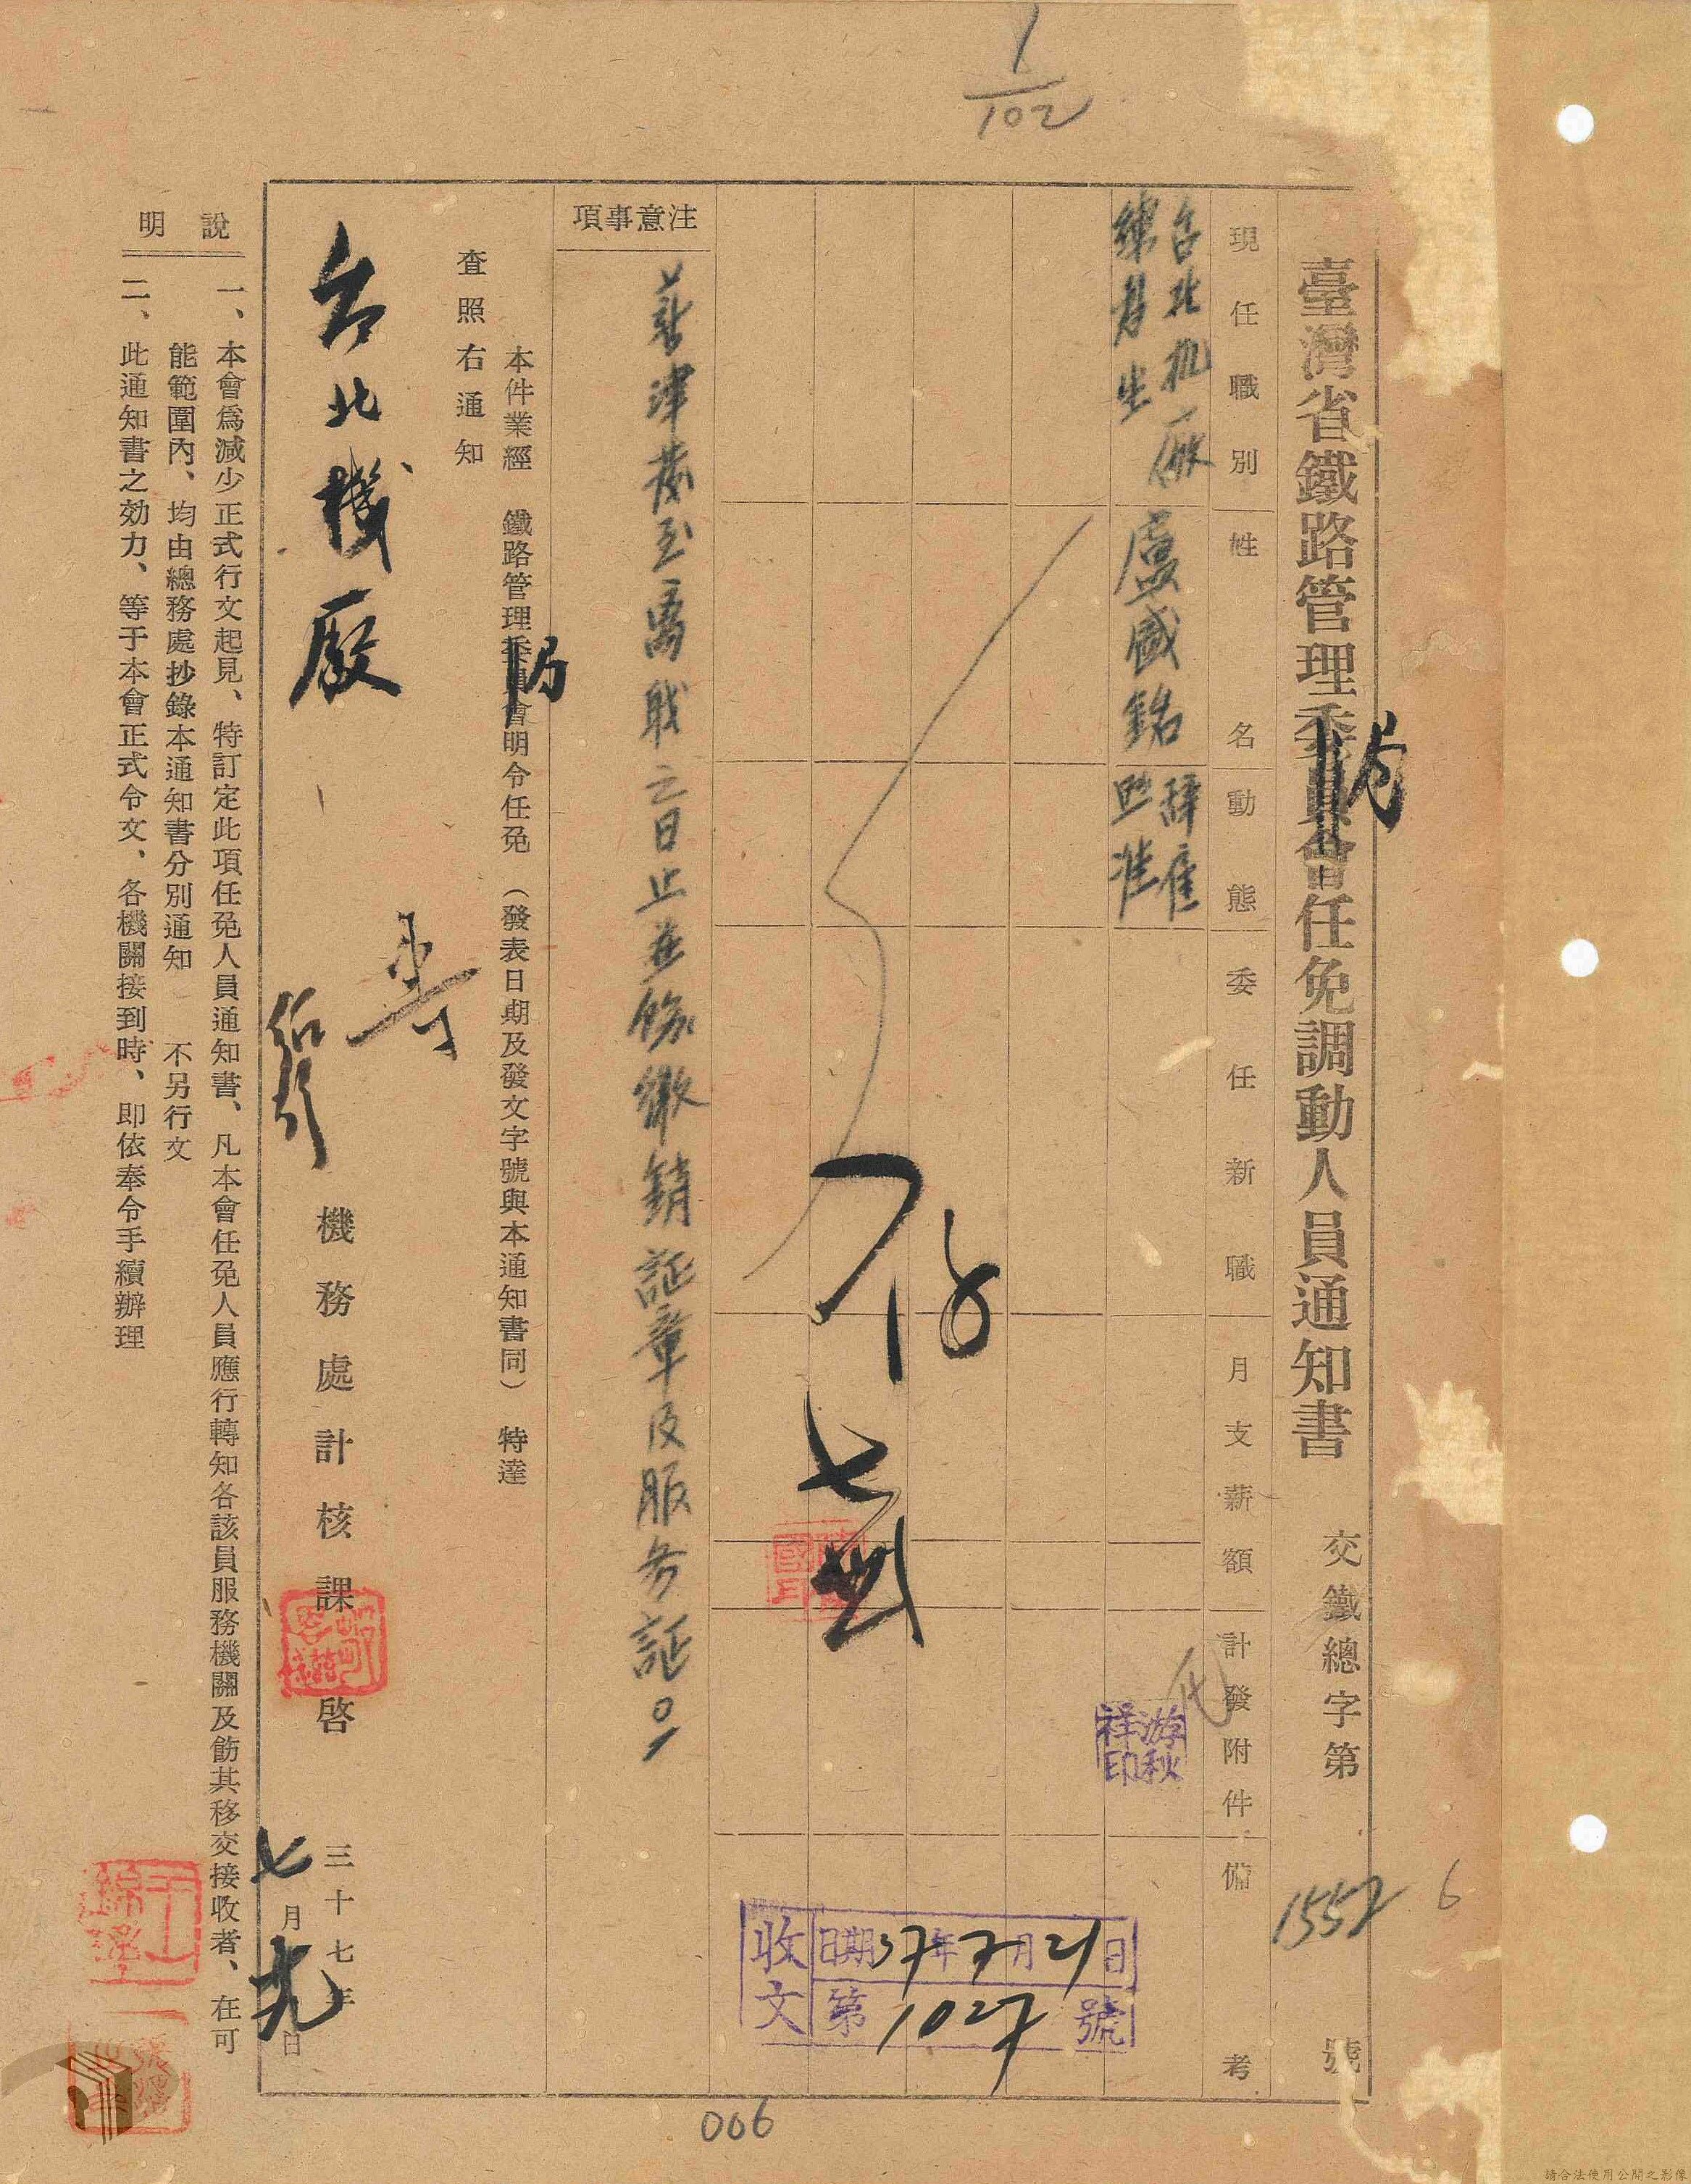 1/102
臺灣省鐵路管理委員會任免調動人員通知書 交鐵總字第 1557 號
局
6
現任職別 姓名 動態 委任新職 月支薪額 計發附件 備考
台北机厰
練習生
盧盛銘
辞雇
照准
游秋
祥印
存
七
收文 日期37年7月21日
第1027號
注意事項
薪津發至离職之日止並飭繳銷証章及服务証
本件業經 鐵路管理委員會明令任免 (發表日期及發文字號與本通知書同) 特達
局
查照右通知
台北機廠
機務處計核課啓
三十七年
七月十九日
說明
一、本會爲減少正式行文起見、特訂定此項任免人員通知書、凡本會任免人員應行轉知各該員服務機關及飭其移交接收者、在可
能範圍內、均由總務處抄錄本通知書分別通知 不另行文
二、此通知書之効力、等于本會正式令文、各機關接到時、即依奉令手續辦理
006
請合法使用公開之影像